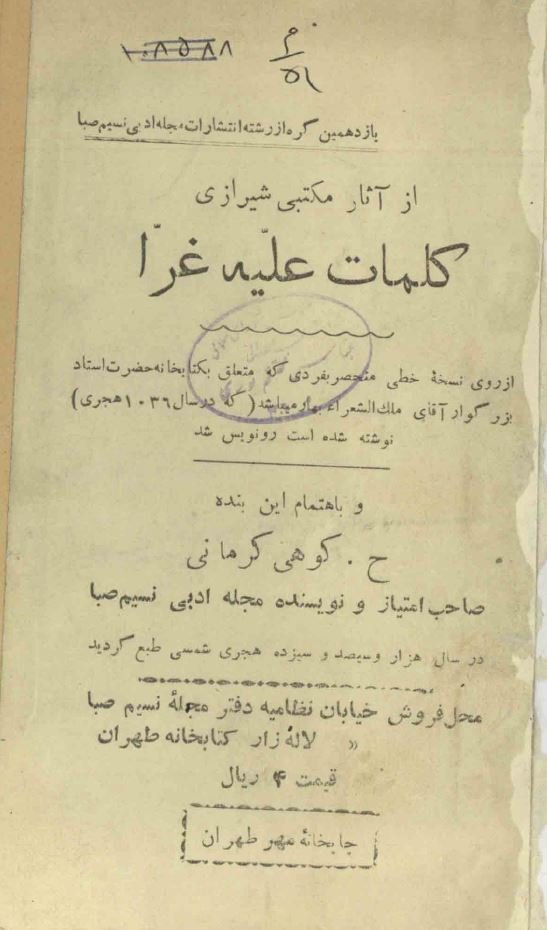 ۱۰۸۵۸۸
م
۵۱
یازدهمین گره از رشته انتشارات مجله ادبی نسیم صبا
از آثار مکتبی شیرازی
کلمات علیّه غرّا
از روی نسخهٔ خطی منحصر بفردی که متعلق بکتابخانه حضرت استاد
بزرگوار آقای ملك‌الشعراء بهار میباشد (که در سال ۱۰۳۶ هجری)
نوشته شده است رونویس شد
و باهتمام این بنده
ح . کوهی کرمانی
صاحب امتیاز و نویسنده مجله ادبی نسیم صبا
در سال هزار و سیصد و سیزده هجری شمسی طبع گردید
محل فروش خیابان نظامیه دفتر مجلهٔ نسیم صبا
« لاله زار کتابخانه طهران
قیمت ۴ ریال
چاپخانهٔ مهر طهران